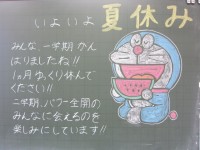 いよいよ 夏休み
みんな、一学期がん
ばりましたね!!
1ヵ月ゆっくり休んで
ください!!
二学期、パワー全開の
みんなに会えるのを
楽しみにしています!!